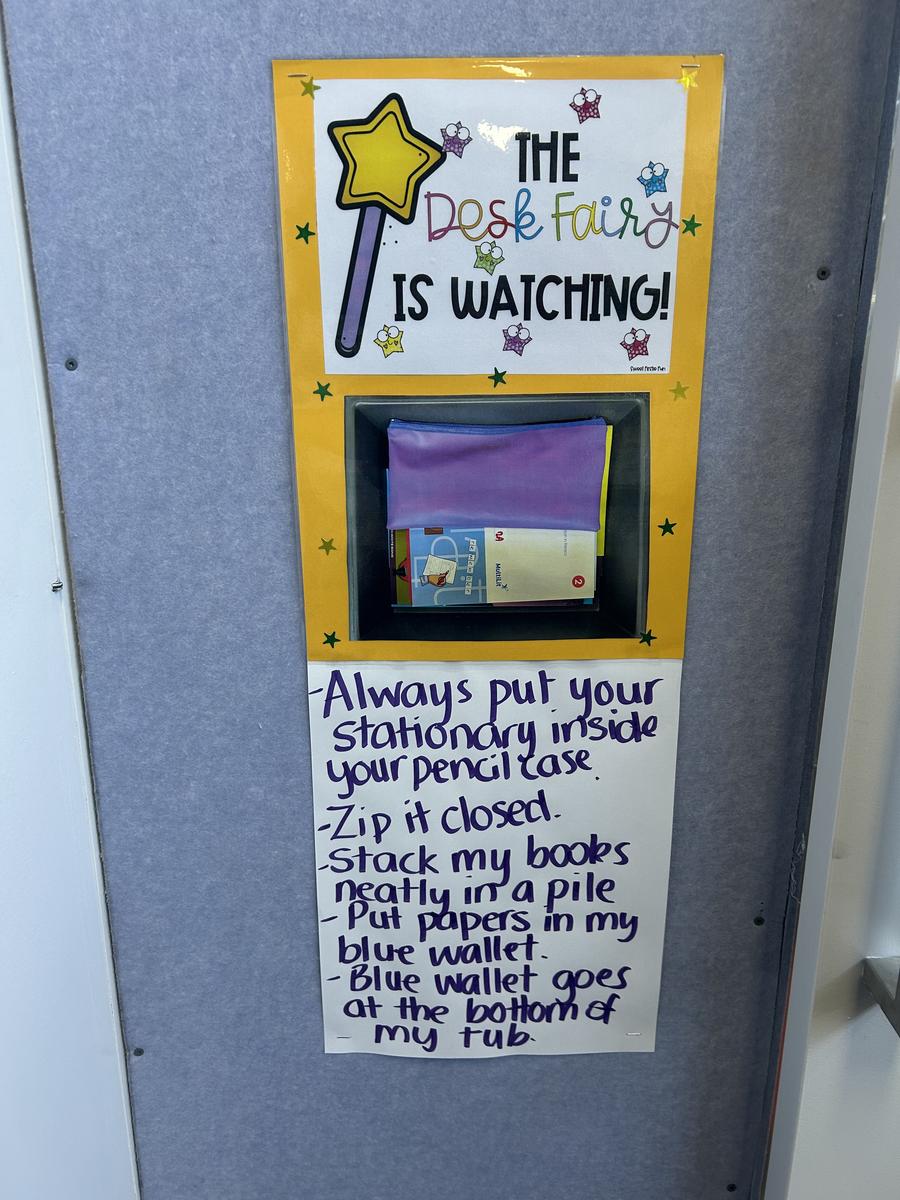 THE
Desk Fairy
IS WATCHING!
MultiLit
2
-Always put your
stationary inside
your pencil case.
-Zip it closed.
-Stack my books
neatly in a pile
- Put papers in my
blue wallet.
- Blue wallet goes
at the bottom of
my tub.